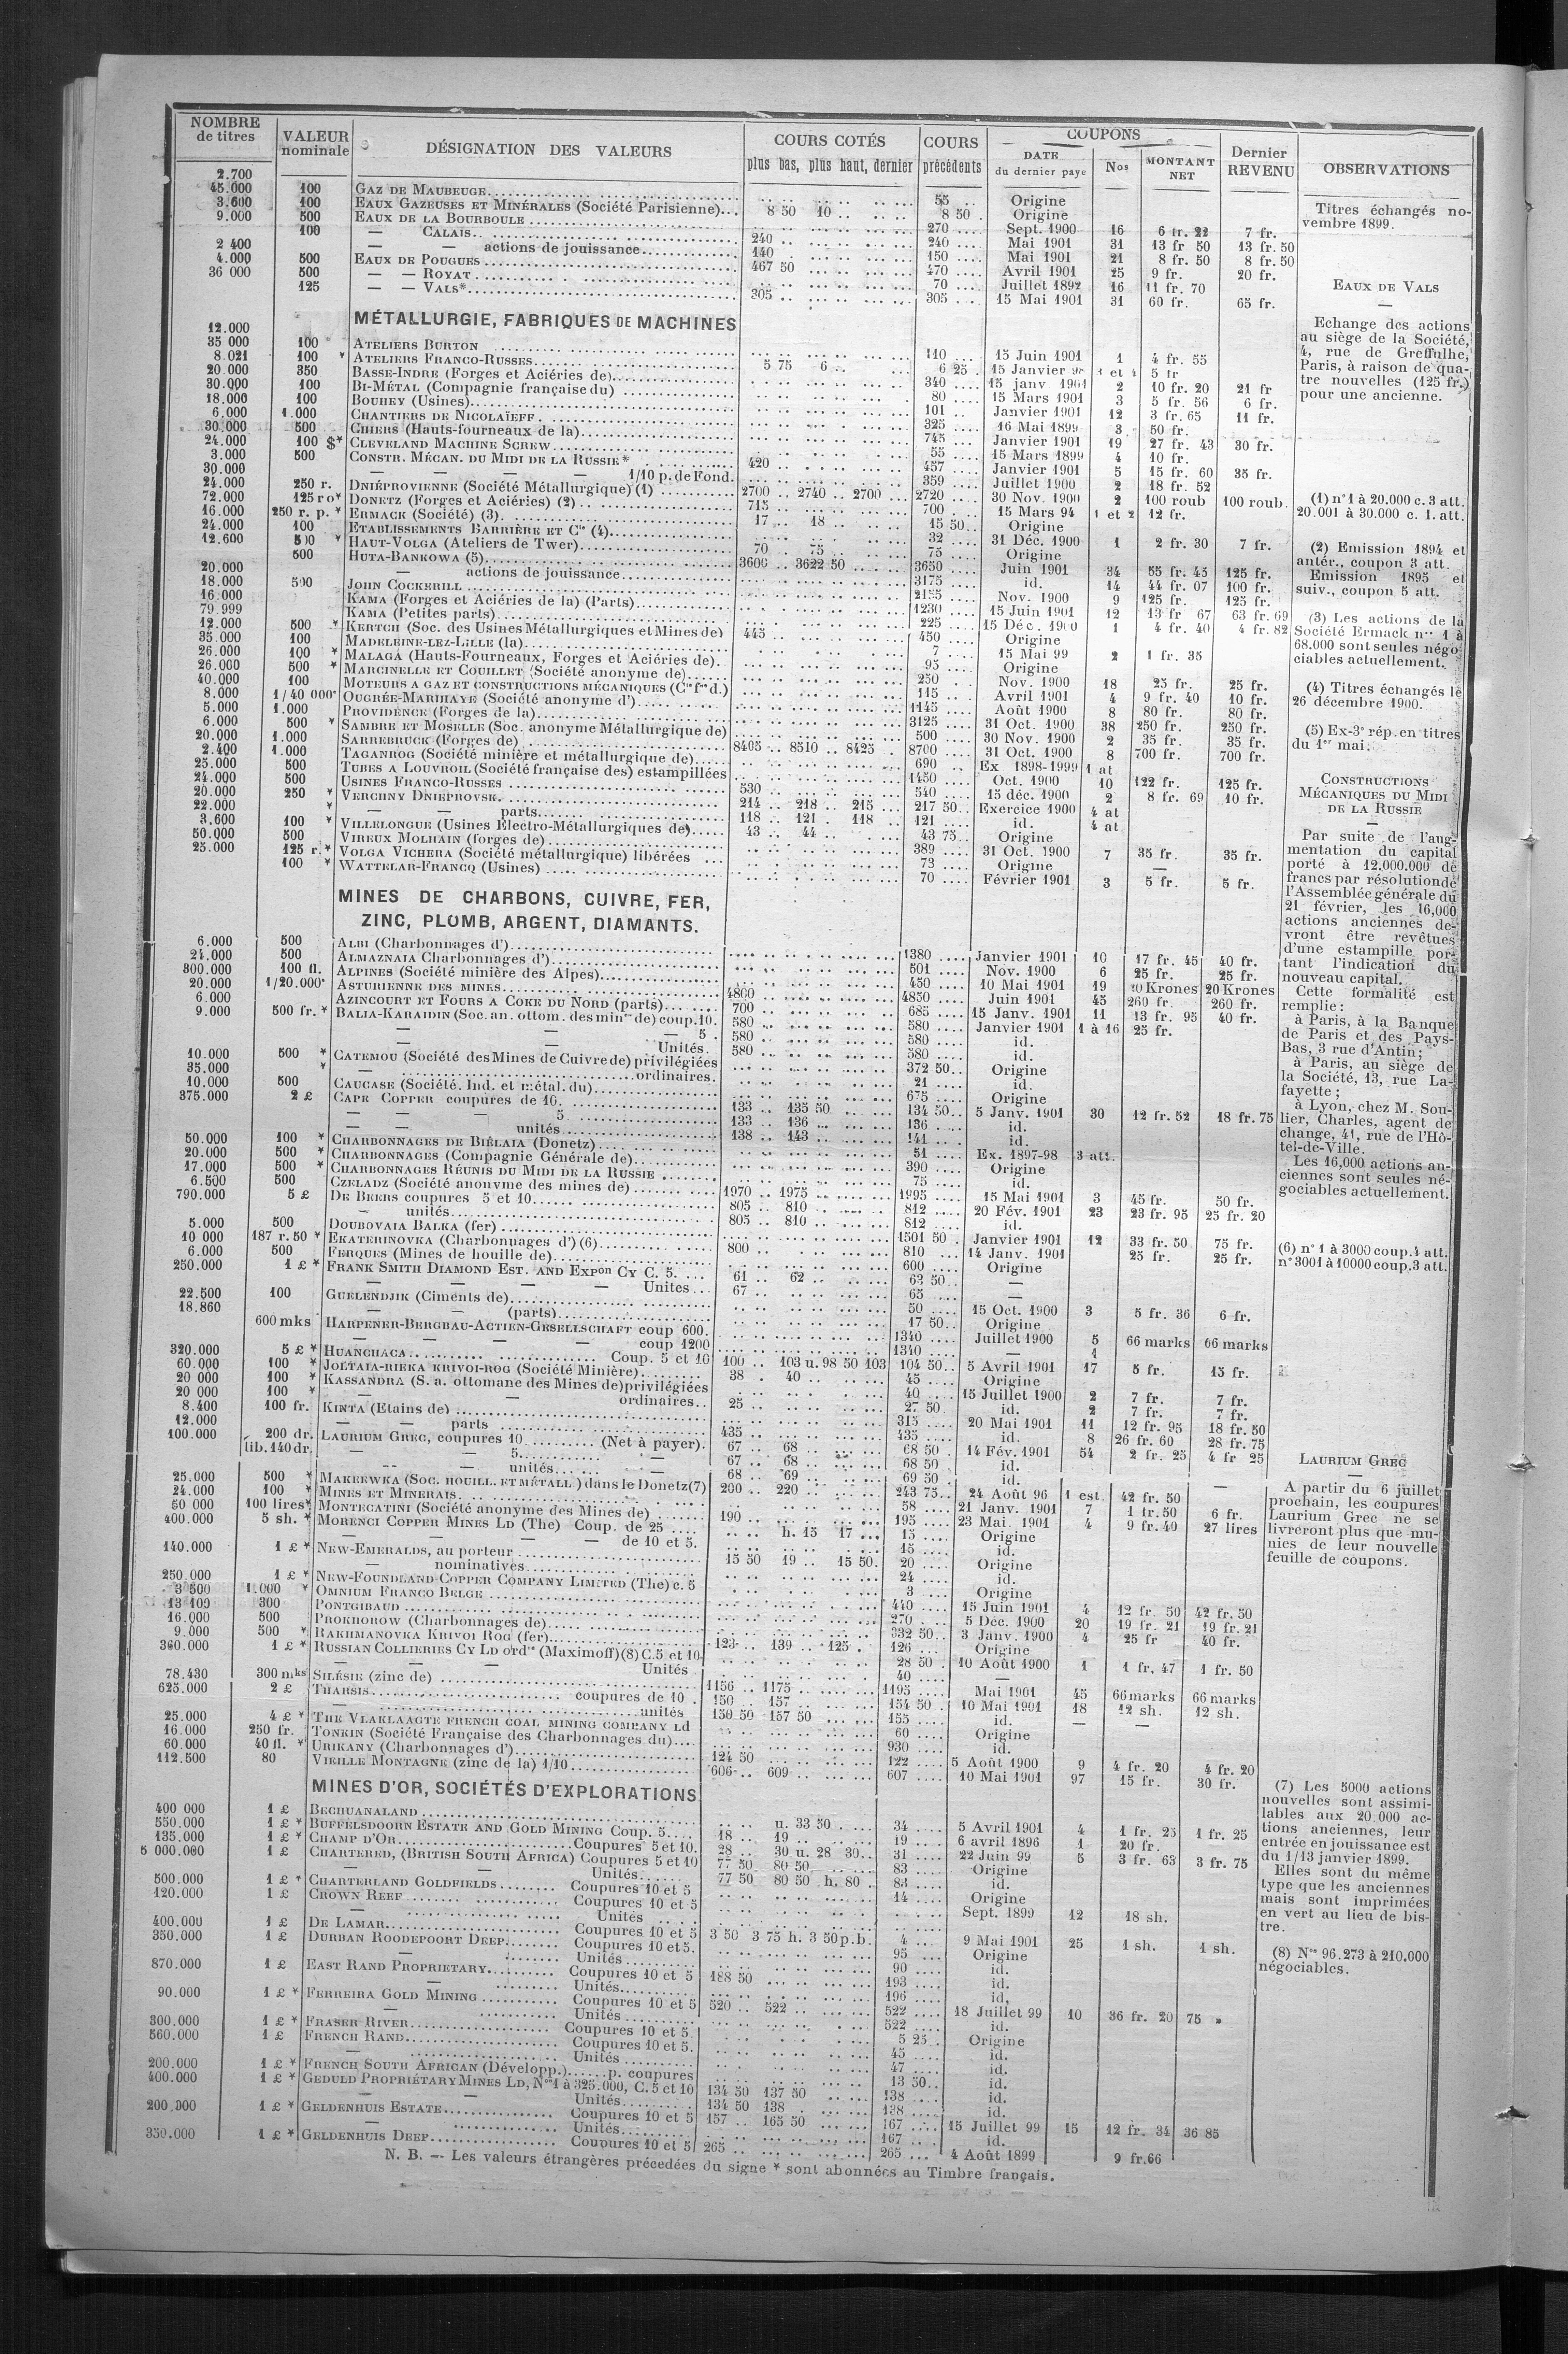 NOMBRE de titres | VALEUR nominale | DÉSIGNATION DES VALEURS | COURS COTÉS plus bas, plus haut, dernier | COURS précédents | COUPONS DATE du dernier payé | Nos | MONTANT NET | Dernier REVENU | OBSERVATIONS
2.700 100 GAZ DE MAUBEUGE 55 Origine
45.000 100 EAUX GAZEUSES ET MINÉRALES (Société Parisienne) 8 50 10 8 50 Origine
3.600 500 EAUX DE LA BOURBOULE 270 Sept. 1900 16 6 fr. 22 7 fr.
9.000 100 — CALAIS 240 240 Mai 1901 31 13 fr 50 13 fr. 50
— — actions de jouissance 140 150 Mai 1901 21 8 fr. 50 8 fr. 50
2 400 500 EAUX DE POUGUES 467 50 470 Avril 1901 25 9 fr. 20 fr.
4.000 500 — — ROYAT 70 Juillet 1892 16 11 fr. 70
36 000 125 — — VALS* 305 305 15 Mai 1901 31 60 fr. 65 fr.
MÉTALLURGIE, FABRIQUES DE MACHINES
12.000 100 ATELIERS BURTON 110 15 Juin 1901 1 4 fr. 55
35 000 100 * ATELIERS FRANCO-RUSSES 5 75 6 6 25 15 Janvier 5 fr
8.021 350 BASSE-INDRE (Forges et Aciéries de) 340 15 janv 1901 2 10 fr. 20 21 fr
20.000 100 BI-MÉTAL (Compagnie française du) 80 15 Mars 1901 3 5 fr. 56 6 fr.
30.000 100 BOUHEY (Usines) 101 Janvier 1901 12 3 fr. 65 11 fr.
18.000 1.000 CHANTIERS DE NICOLAÏEFF 325 16 Mai 1899 3 50 fr.
6.000 500 CHIERS (Hauts-fourneaux de la) 745 Janvier 1901 19 27 fr. 43 30 fr.
30.000 100 $* CLEVELAND MACHINE SCREW 55 15 Mars 1899 4 10 fr.
24.000 500 CONSTR. MÉCAN. DU MIDI DE LA RUSSIE* 420 457 Janvier 1901 5 15 fr. 60 35 fr.
3.000 — — — — 1/10 p. de Fond. 359 Juillet 1900 2 18 fr. 52
30.000 250 r. DNIÉPROVIENNE (Société Métallurgique) (1) 2700 2740 2700 2720 30 Nov. 1900 2 100 roub 100 roub.
24.000 125 r o* DONETZ (Forges et Aciéries) (2) 715 700 15 Mars 94 1 et 2 12 fr.
72.000 250 r. p. * ERMACK (Société) (3) 17 18 15 50 Origine
16.000 100 ETABLISSEMENTS BARRIÈRE ET Cie (4) 32 31 Déc. 1900 1 2 fr. 30 7 fr.
24.000 500 * HAUT-VOLGA (Ateliers de Twer) 70 75 75 Origine
12.600 500 HUTA-BANKOWA (5) 3600 3622 50 3650 Juin 1901 34 55 fr. 45 125 fr.
— actions de jouissance 3175 id. 14 44 fr. 07 100 fr.
20.000 500 JOHN COCKERILL 2155 Nov. 1900 9 125 fr. 125 fr.
18.000 KAMA (Forges et Aciéries de la) (Parts) 1230 15 Juin 1901 12 13 fr 67 63 fr. 69
16.000 KAMA (Petites parts) 225 15 Déc. 1900 1 4 fr. 40 4 fr. 82
79.999 500 * KERTCH (Soc. des Usines Métallurgiques et Mines de) 445 450 Origine
12.000 100 MADELEINE-LEZ-LILLE (la) 7 15 Mai 99 2 1 fr. 35
35.000 100 * MALAGA (Hauts-Fourneaux, Forges et Aciéries de) 95 Origine
26.000 500 * MARCINELLE ET COUILLET (Société anonyme de) 250 Nov. 1900 18 25 fr. 25 fr.
26.000 100 MOTEURS A GAZ ET CONSTRUCTIONS MÉCANIQUES (Cie fse d.) 115 Avril 1901 4 9 fr. 40 10 fr.
40.000 1/40 000e OUGRÉE-MARIHAYE (Société anonyme d') 1145 Août 1900 8 80 fr. 80 fr.
8.000 1.000 PROVIDENCE (Forges de la) 3125 31 Oct. 1900 38 250 fr. 250 fr.
5.000 500 * SAMBRE ET MOSELLE (Soc. anonyme Métallurgique de) 500 30 Nov. 1900 2 35 fr. 35 fr.
6.000 1.000 SARREBRUCK (Forges de) 8405 8510 8425 8700 31 Oct. 1900 8 700 fr. 700 fr.
20.000 1.000 TAGANROG (Société minière et métallurgique de) 690 Ex 1898-1999 1 at
2.400 500 TUBES A LOUVROIL (Société française des) estampillées 1450 Oct. 1900 10 122 fr. 125 fr.
25.000 500 USINES FRANCO-RUSSES 530 540 15 déc. 1900 2 8 fr. 69 10 fr.
24.000 250 * VERCHNY DNIEPROVSK 214 218 215 217 50 Exercice 1900 4 at
20.000 * — — parts 118 121 118 121 id. 4 at
22.000 100 * VILLELONGUE (Usines Electro-Métallurgiques de) 43 44 43 75 Origine
3.600 500 VIREUX MOLHAIN (forges de) 389 31 Oct. 1900 7 35 fr. 35 fr.
50.000 125 r.* VOLGA VICHERA (Société métallurgique) libérées 73 Origine —
25.000 100 * WATTELAR-FRANCQ (Usines) 70 Février 1901 3 5 fr. 5 fr.
MINES DE CHARBONS, CUIVRE, FER,
ZINC, PLOMB, ARGENT, DIAMANTS.
6.000 500 ALBI (Charbonnages d') 1380 Janvier 1901 10 17 fr. 45 40 fr.
24.000 500 ALMAZNAIA Charbonnages d') 501 Nov. 1900 6 25 fr. 25 fr.
300.000 100 fl. ALPINES (Société minière des Alpes) 450 10 Mai 1901 19 20 Krones 20 Krones
20.000 1/20.000e ASTURIENNE DES MINES 4800 4850 Juin 1901 45 260 fr. 260 fr.
6.000 AZINCOURT ET FOURS A COKE DU NORD (parts) 700 685 15 Janv. 1901 11 13 fr. 95 40 fr.
9.000 500 fr. * BALIA-KARAIDIN (Soc. an. ottom. des mines de) coup. 10. 580 580 Janvier 1901 1 à 16 25 fr.
— — 5 580 580 id.
— — Unités. 580 580 id.
10.000 500 * CATEMOU (Société des Mines de Cuivre de) privilégiées 372 50 Origine
35.000 * — ordinaires. 21 id.
10.000 500 CAUCASE (Société. Ind. et métal. du) 675 Origine
375.000 2 £ CAPE COPPER coupures de 10. 133 135 50 134 50 5 Janv. 1901 30 12 fr. 52 18 fr. 75
— — — 5 133 136 136 id.
— — unités 138 143 141 id.
50.000 100 * CHARBONNAGES DE BIÉLAIA (Donetz) 51 Ex. 1897-98 3 att.
20.000 500 * CHARBONNAGES (Compagnie Générale de) 390 Origine
17.000 500 * CHARBONNAGES RÉUNIS DU MIDI DE LA RUSSIE 75 id.
6.500 500 CZELADZ (Société anonyme des mines de) 1970 1975 1995 15 Mai 1901 3 45 fr. 50 fr.
790.000 5 £ DE BEERS coupures 5 et 10 805 810 812 20 Fév. 1901 23 23 fr. 95 25 fr. 20
— unités 805 810 812 id.
5.000 500 DOUBOVAIA BALKA (fer) 1501 50 Janvier 1901 12 33 fr. 50 75 fr.
10 000 187 r. 50 * EKATERINOVKA (Charbonnages d') (6) 800 810 14 Janv. 1901 25 fr. 25 fr.
6.000 500 FERQUES (Mines de houille de) 600 Origine
250.000 1 £ * FRANK SMITH DIAMOND EST. AND EXPon CY C. 5. 61 62 63 50 —
— — — — Unites 67 65 —
22.500 100 GUELENDJIK (Ciments de) 50 15 Oct. 1900 3 5 fr. 36 6 fr.
18.860 — — (parts) 17 50 Origine
600 mks HARPENER-BERGBAU-ACTIEN-GESELLSCHAFT coup 600. 1340 Juillet 1900 5 66 marks 66 marks
— — — — coup 1200 1340 — 4
320.000 5 £ * HUANCHACA Coup. 5 et 10 100 103 u. 98 50 103 104 50 5 Avril 1901 17 5 fr. 15 fr.
60.000 100 * JOLTAIA-RIEKA KRIVOI-ROG (Société Minière) 38 40 45 Origine
20 000 100 * KASSANDRA (S. a. ottomane des Mines de) privilégiées 40 15 Juillet 1900 2 7 fr. 7 fr.
20 000 100 * — — ordinaires 25 27 50 id. 2 7 fr. 7 fr.
8.400 100 fr. KINTA (Etains de) 315 20 Mai 1901 11 12 fr. 95 18 fr. 50
12.000 — — parts 435 435 id. 8 26 fr. 60 28 fr. 75
100.000 200 dr. LAURIUM GREC, coupures 10 (Net à payer). 67 68 68 50 14 Fév. 1901 54 2 fr. 25 4 fr 25
lib. 140 dr. — — 5 — 67 68 68 50 id.
— — unités — 68 69 69 50 id.
25.000 500 * MAKEEWKA (SOC. HOUILL. ET MÉTALL) dans le Donetz (7) 200 220 243 75 24 Août 96 1 est. 42 fr. 50 —
24.000 100 * MINES ET MINERAIS 58 21 Janv. 1901 7 1 fr. 50 6 fr.
50 000 100 lires* MONTECATINI (Société anonyme des Mines de) 190 195 23 Mai. 1901 4 9 fr. 40 27 lires
400.000 5 sh. * MORENCI COPPER MINES LD (The) Coup. de 25 h. 15 17 15 Origine
— — — de 10 et 5. 15 id.
140.000 1 £ * NEW-EMERALDS, au porteur 15 50 19 15 50 20 Origine
— nominatives 24 id.
250.000 1 £ * NEW-FOUNDLAND-COPPER COMPANY LIMITED (The) c. 5 3 Origine
3 500 1.000 * OMNIUM FRANCO BELGE 440 15 Juin 1901 4 12 fr. 50 42 fr. 50
13 109 300 PONTGIBAUD 270 5 Déc. 1900 20 19 fr. 21 19 fr. 21
16.000 500 PROKHOROW (Charbonnages de) 332 50 3 Janv. 1900 4 25 fr 40 fr.
9.000 500 * RAKHMANOVKA KRIVOI ROG (fer) 123 139 125 126 Origine
360.000 1 £ * RUSSIAN COLLIERIES CY LD ordres (Maximoff) (8) C. 5 et 10 28 50 10 Août 1900 1 1 fr. 47 1 fr. 50
— — — Unités 40 —
78.430 300 mks SILÉSIE (zinc de) 1156 1175 1195 Mai 1901 45 66 marks 66 marks
625.000 2 £ THARSIS coupures de 10 150 157 154 50 10 Mai 1901 18 12 sh. 12 sh.
— unités 150 50 157 50 155 id. — —
25.000 4 £ * THE VLAKLAAGTE FRENCH COAL MINING COMPANY Ld 60 Origine
16.000 250 fr. TONKIN (Société Française des Charbonnages du) 930 id.
60.000 40 fl. * URIKANY (Charbonnages d') 124 50 122 5 Août 1900 9 4 fr. 20 4 fr. 20
112.500 80 VIEILLE MONTAGNE (zinc de la) 1/10 606 609 607 10 Mai 1901 97 15 fr. 30 fr.
MINES D'OR, SOCIÉTÉS D'EXPLORATIONS
400 000 1 £ BECHUANALAND u. 33 50 34 5 Avril 1901 4 1 fr. 25 1 fr. 25
550.000 1 £ * BUFFELSDOORN ESTATE AND GOLD MINING Coup. 5 18 19 19 6 avril 1896 1 20 fr.
135.000 1 £ * CHAMP D'OR Coupures 5 et 10. 28 30 u. 28 30 31 22 Juin 99 5 3 fr. 63 3 fr. 75
5 000.000 1 £ CHARTERED, (BRITISH SOUTH AFRICA) Coupures 5 et 10 77 50 80 50 83 Origine
— Unités 77 50 80 50 h. 80 83 id.
500.000 1 £ * CHARTERLAND GOLDFIELDS Coupures 10 et 5 14 Origine
120.000 1 £ CROWN REEF Coupures 10 et 5 Sept. 1899 12 18 sh.
— Unités
400.000 1 £ DE LAMAR Coupures 10 et 5 3 50 3 75 h. 3 50 p.b. 4 9 Mai 1901 25 1 sh. 1 sh.
350.000 1 £ DURBAN ROODEPOORT DEEP Coupures 10 et 5. 95 Origine
— Unités 90 id.
870.000 1 £ EAST RAND PROPRIETARY Coupures 10 et 5 188 50 193 id.
— Unités 196 id.
90.000 1 £ * FERREIRA GOLD MINING Coupures 10 et 5 520 522 522 18 Juillet 99 10 36 fr. 20 75 »
— Unités 522 id.
300.000 1 £ * FRASER RIVER Coupures 10 et 5 5 25 Origine
560.000 1 £ FRENCH RAND Coupures 10 et 5. 45 id.
— Unités 47 id.
200.000 1 £ * FRENCH SOUTH AFRICAN (Développ.) p. coupures 13 50 id.
400.000 1 £ * GEDULD PROPRIÉTARY MINES LD, Nos 1 à 325.000, C. 5 et 10 134 50 137 50 138 id.
— Unités 134 50 138 138 id.
200.000 1 £ * GELDENHUIS ESTATE Coupures 10 et 5 157 165 50 167 15 Juillet 99 15 12 fr. 34 36 85
— Unités 167 id.
350.000 1 £ * GELDENHUIS DEEP Coupures 10 et 5 265 265 4 Août 1899 9 fr. 66
N. B. — Les valeurs étrangères précédées du signe * sont abonnées au Timbre français.
Titres échangés no-
vembre 1899.
EAUX DE VALS
Echange des actions
au siège de la Société,
4, rue de Greffulhe,
Paris, à raison de qua-
tre nouvelles (125 fr.)
pour une ancienne.
(1) n° 1 à 20.000 c. 3 att.
20.001 à 30.000 c. 1. att.
(2) Emission 1894 et
antér., coupon 3 att.
Emission 1895 et
suiv., coupon 5 att.
(3) Les actions de la
Société Ermack nos 1 à
68.000 sont seules négo-
ciables actuellement.
(4) Titres échangés le
26 décembre 1900.
(5) Ex-3e rép. en titres
du 1er mai.
CONSTRUCTIONS
MÉCANIQUES DU MIDI
DE LA RUSSIE
Par suite de l'aug-
mentation du capital
porté à 12.000.000 de
francs par résolution de
l'Assemblée générale du
21 février, les 16,000
actions anciennes de-
vront être revêtues
d'une estampille por-
tant l'indication du
nouveau capital.
Cette formalité est
remplie:
à Paris, à la Banque
de Paris et des Pays-
Bas, 3 rue d'Antin;
à Paris, au siège de
la Société, 13, rue La-
fayette;
à Lyon, chez M. Sou-
lier, Charles, agent de
change, 41, rue de l'Hô-
tel-de-Ville.
Les 16,000 actions an-
ciennes sont seules né-
gociables actuellement.
(6) n° 1 à 3000 coup. 4 att.
n° 3001 à 10000 coup. 3 att.
LAURIUM GREC
A partir du 6 juillet
prochain, les coupures
Laurium Grec ne se
livreront plus que mu-
nies de leur nouvelle
feuille de coupons.
(7) Les 5000 actions
nouvelles sont assimi-
lables aux 20.000 ac-
tions anciennes, leur
entrée en jouissance est
du 1/13 janvier 1899.
Elles sont du même
type que les anciennes
mais sont imprimées
en vert au lieu de bis-
tre.
(8) Nos 96.273 à 210.000
négociables.